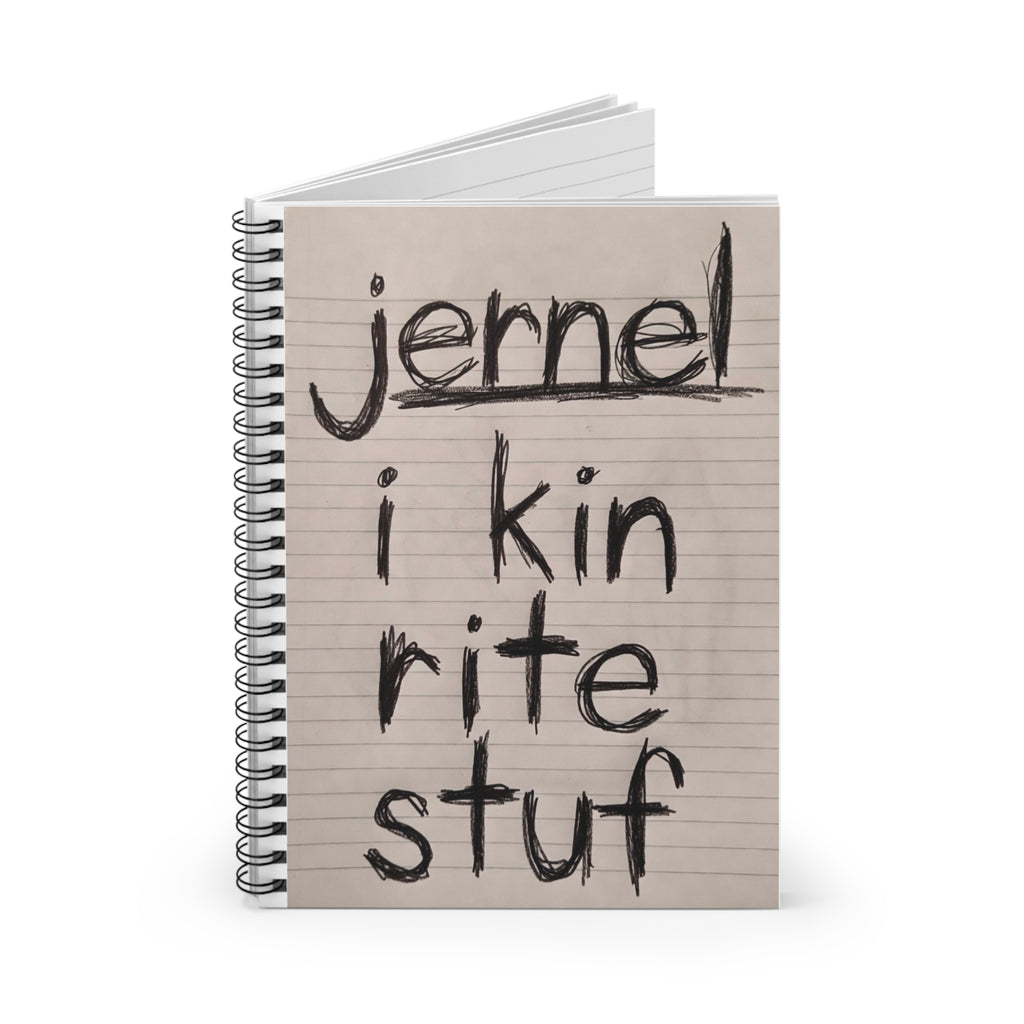 jernel
i kin
rite
stuf